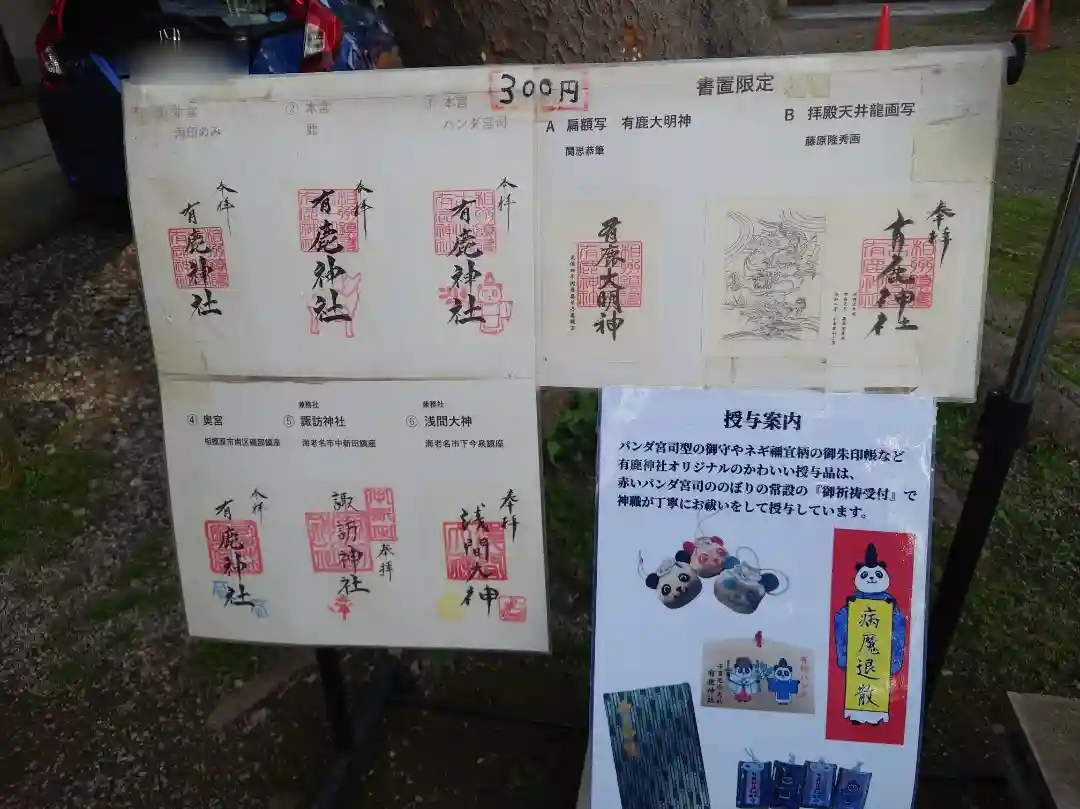 300円
① 本宮
角印のみ
② 本宮
鹿
③ 本宮
パンダ宮司
書置限定
A 扁額写 有鹿大明神
関思恭筆
B 拝殿天井龍画写
藤原隆秀画
奉拝
有鹿神社
奉拝
有鹿神社
奉拝
有鹿神社
有鹿大明神
奉拝
有鹿神社
④ 奥宮
相模原市南区磯部鎮座
兼務社
⑤ 諏訪神社
海老名市中新田鎮座
兼務社
⑥ 浅間大神
海老名市下今泉鎮座
奉拝
有鹿神社
諏訪神社
奉拝
奉拝
浅間大神
授与案内
パンダ宮司型の御守やネギ禰宜柄の御朱印帳など
有鹿神社オリジナルのかわいい授与品は、
赤いパンダ宮司ののぼりの常設の『御祈祷受付』で
神職が丁寧にお祓いをして授与しています。
病魔退散
有鹿神社